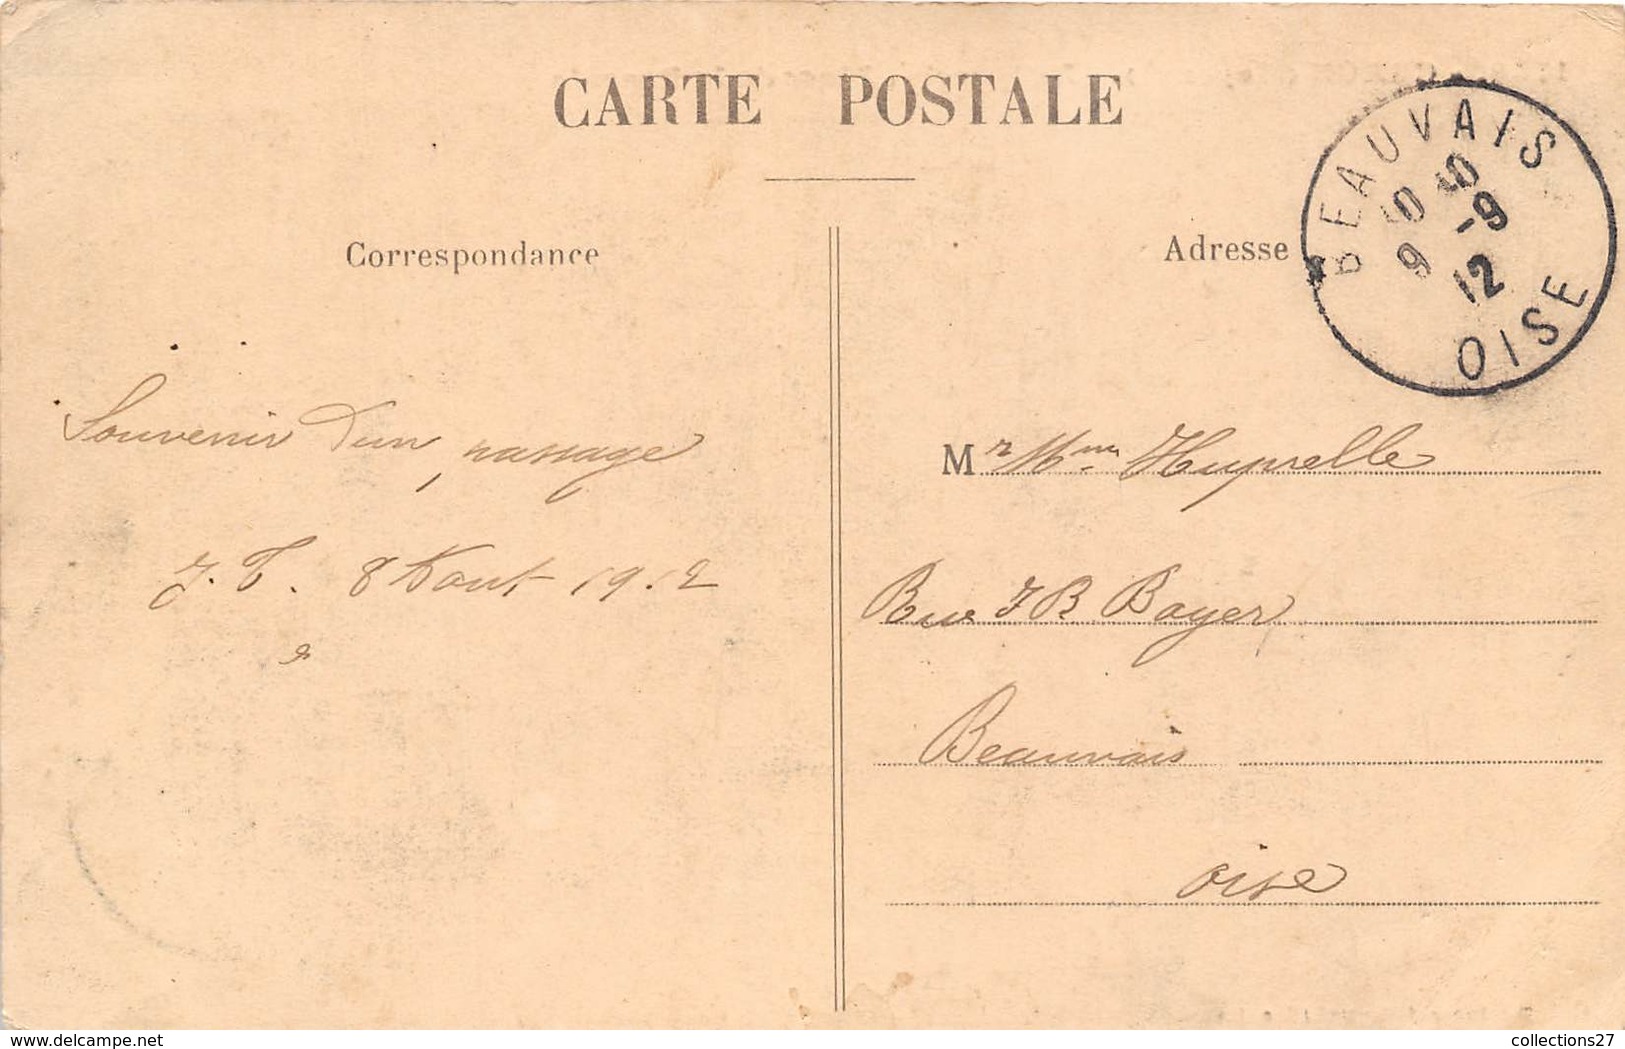 CARTE POSTALE
Correspondance
Adresse
BEAUVAIS
10 40
9 -9
12
OISE
Souvenir d'un passage
J. T. 8 Aout 1912
Mr Mme Huprelle
Rue J B Boyer
Beauvais
Oise
delcampe.net
collections27